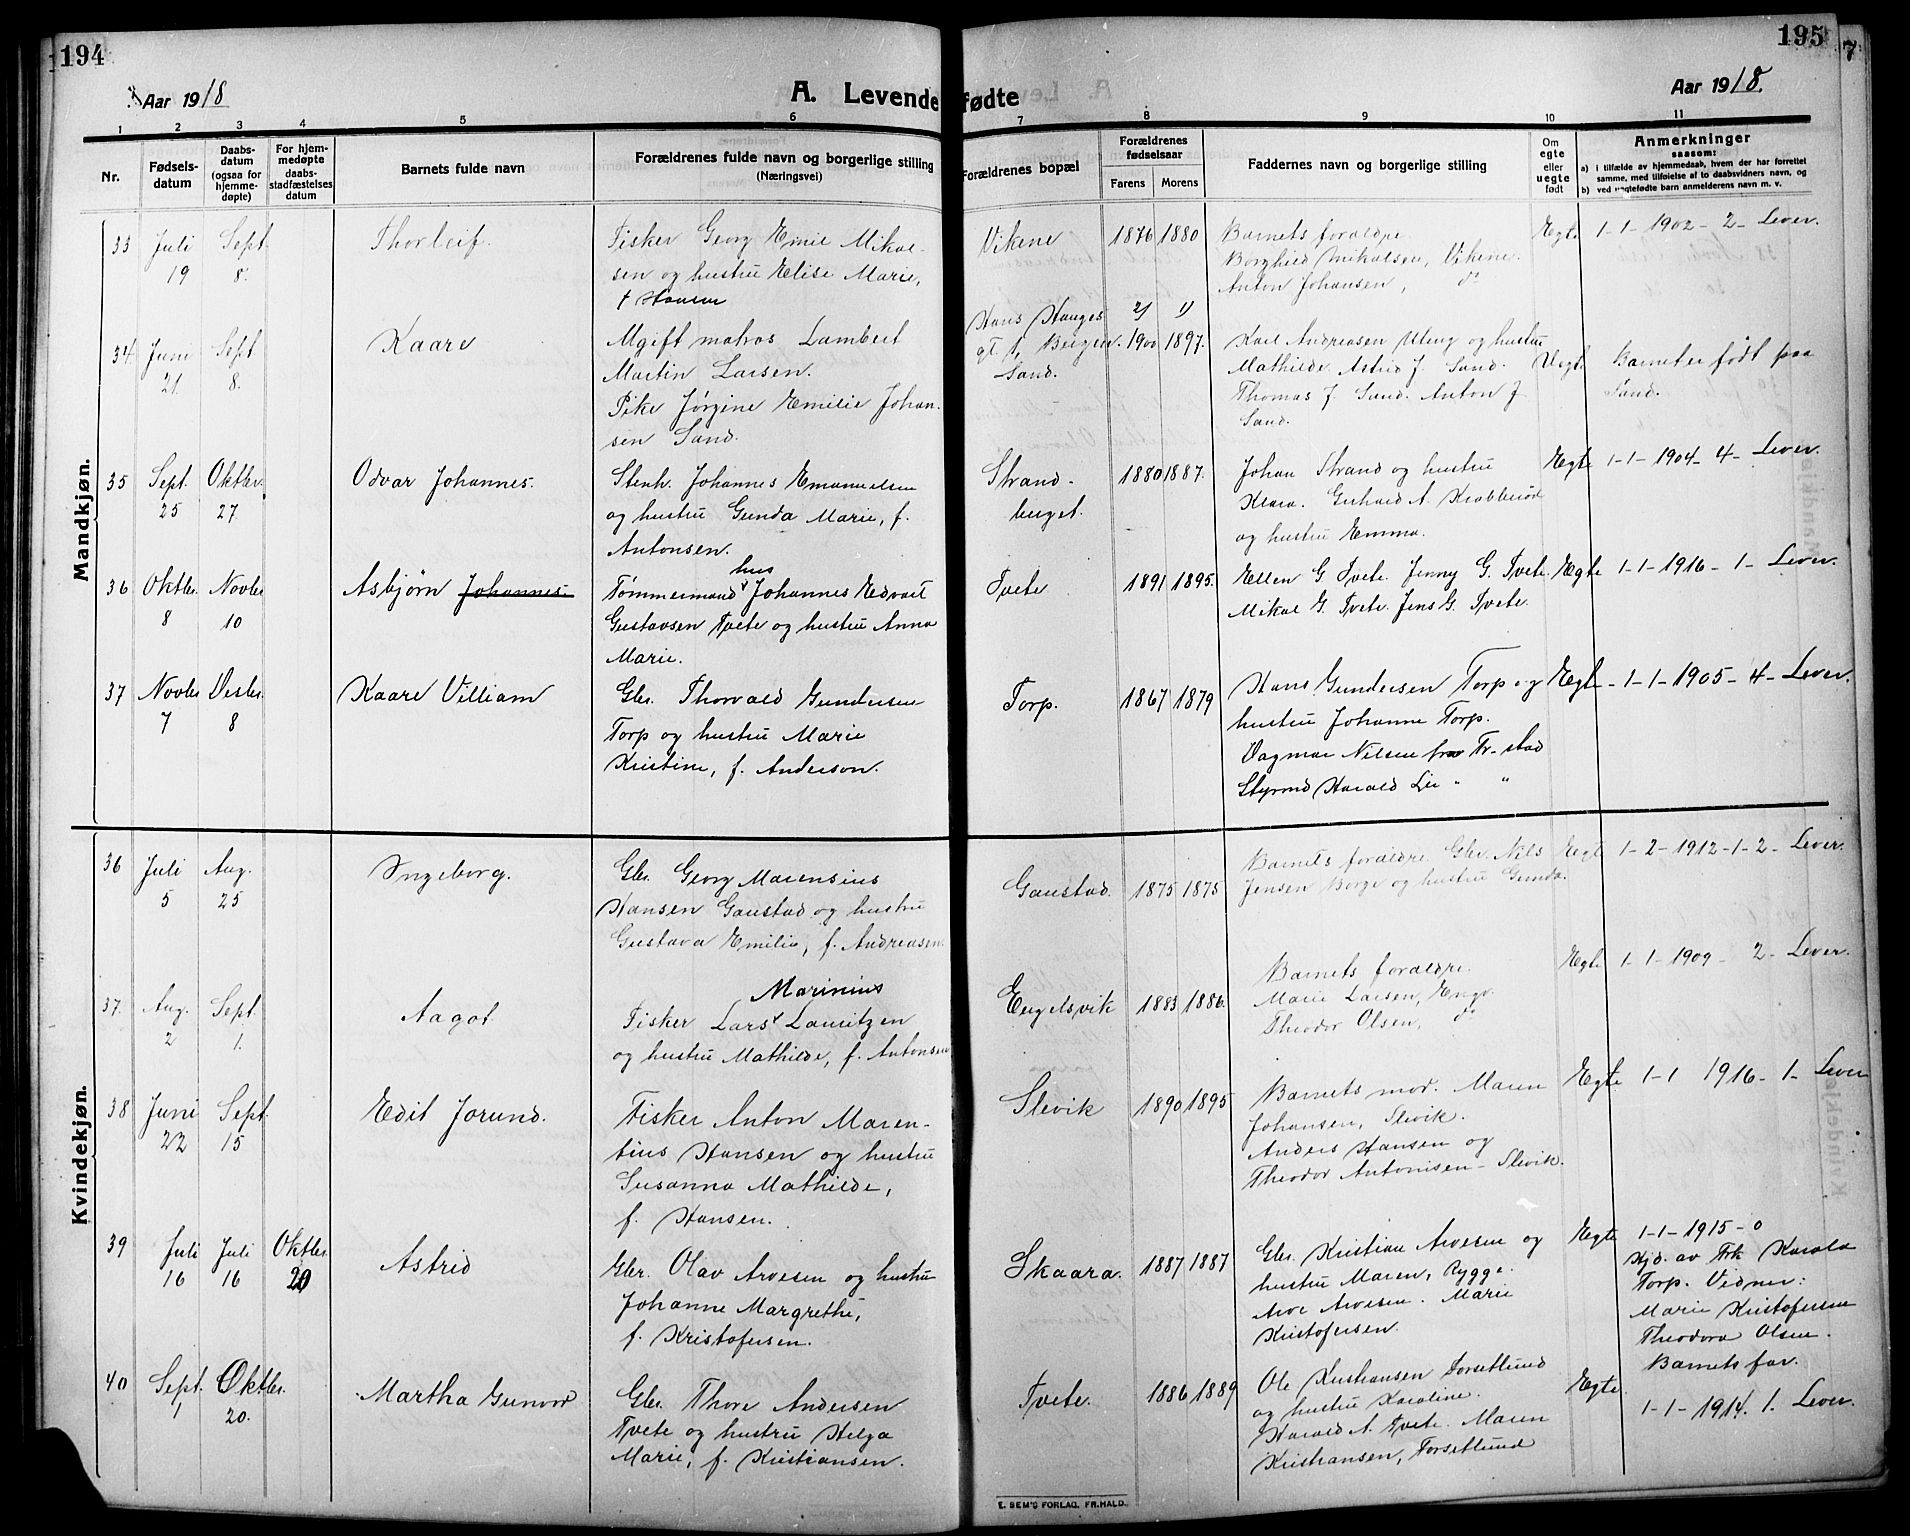 194
195
7
Aar 1918
A. Levende fødte
Aar 1918.
1 2 3 4 5 6 7 8 9 10 11
Nr.
Fødsels-
datum
Daabs-
datum
(ogsaa for
hjemme-
døpte)
For hjem-
medøpte
daabs-
stadfæstelses
datum
Barnets fulde navn
Forældrenes fulde navn og borgerlige stilling
(Næringsvei)
Forældrenes bopæl
Forældrenes
fødselsaar
Farens Morens
Faddernes navn og borgerlige stilling
Om
egte
eller
uegte
født
Anmerkninger
saasom:
a) i tilfælde av hjemmedaab, hvem der har forrettet
samme, med tilføielse af to daabsvidners navn, og
b) ved uegtefødte barn anmelderens navn m. v.
Mandkjøn.
33 Juli Sept. Thorleif. Fisker Georg Emil Mikal- Vikene 1876 1880 Barnets foraldre. Egte 1-1-1902-2-Lever.
19 8. sen og hustru Elise Marie, Borghild Mikalsen, Vikene.
f Hansen Anton Johansen, do
34 Juni Sept Kaare Ugift matros Lambert Hans Hauges 2) 1) Karl Andreasen Uteng og hustru Uegte Barnet er født paa
21. 8. Martin Larsen. gt. 1, Bergen. 1900 1897. Mathilde. Astrid J. Sand. Sand.
Pike Jørgine Emilie Johan- Sand. Thomas J. Sand. Anton J.
sen Sand. Sand.
35 Sept. Oktbr. Odvar Johannes. Stenh. Johannes Emanuelsen Strand- 1880 1887. Johan Strand og hustru Egte 1-1-1904-4-Lever.
25 27. og hustru Gunda Marie, f. berget. Klara. Gerhard A. Krabberød
Antonsen. og hustru Emma.
hus
36 Oktbr. Novbr Asbjørn Johannes. Tømmermand Johannes Edvart Tvete 1891 1895. Ellen G Tvete. Jenny G. Tvete. Egte 1-1-1916-1-Lever.
8 10 Gustavsen Tvete og hustru Anna Mikal G. Tvete. Jens G. Tvete.
Marie.
37 Novbr Desbr. Kaare Villiam Gbr. Thorvald Gundersen Torp. 1867 1879 Hans Gundersen Torp og Egte 1-1-1905-4-Lever.
7 8 Torp og hustru Marie hustru Johanne Torp.
Kristine, f. Anderson. Dagmar Nilsen fra Fr.stad
Styrmd Harald Lie " "
Kvindekjøn.
36 Juli Aug. Ingeborg. Gbr. Georg Marensius Gaustad. 1875 1875 Barnets foraldre. Gbr. Nils Egte 1-2-1912-1-2-Lever.
5 25 Hansen Gaustad og hustru Jensen Borge og hustru Gunda.
Gustava Emilie, f. Andreasen.
Marinius
37. Aug. Sept. Aagot Fisker Lars Lauritzen Engelsvik 1883 1886. Barnets foraldre. Egte 1-1-1909-2-Lever.
2 1. og hustru Mathilde, f. Antonsen Marie Larsen, Engv.
Theodor Olsen, do
38 Juni Sept. Edit Jorund. Fisker Anton Maren- Slevik 1890 1895 Barnets mor. Maren Egte 1-1 1916-1-Lever
22 15 tius Hansen og hustru Johansen, Slevik.
Susanna Mathilde, Anders Hansen og
f. Hansen. Theodor Antonisen-Slevik.
39 Juli Juli Oktbr. Astrid Gbr. Olav Arvesen og hustru Skaara. 1887 1887 Gbr. Kristian Arvesen og Egte 1-1-1915-0
16 16 20 Johanne Margrethe, hustru Maren, Rygge. Hjd. av Frk Karola
f. Kristofersen. Arve Arvesen. Marie Torp. Vidner:
Kristofersen. Marie Kristofersen
Theodora Olsen.
Barnets far.
40 Sept. Oktbr. Martha Gunvor Gbr. Thore Andersen Tvete. 1886 1889 Ole Kristiansen Torsetlund Egte. 1-1-1914. 1. Lever.
1 20. Tvete og hustru Helga og hustru Karoline.
Marie, f. Kristiansen. Harald A. Tvete. Maren
Kristiansen, Torsetlund
E. SEM'S FORLAG, FR.HALD.